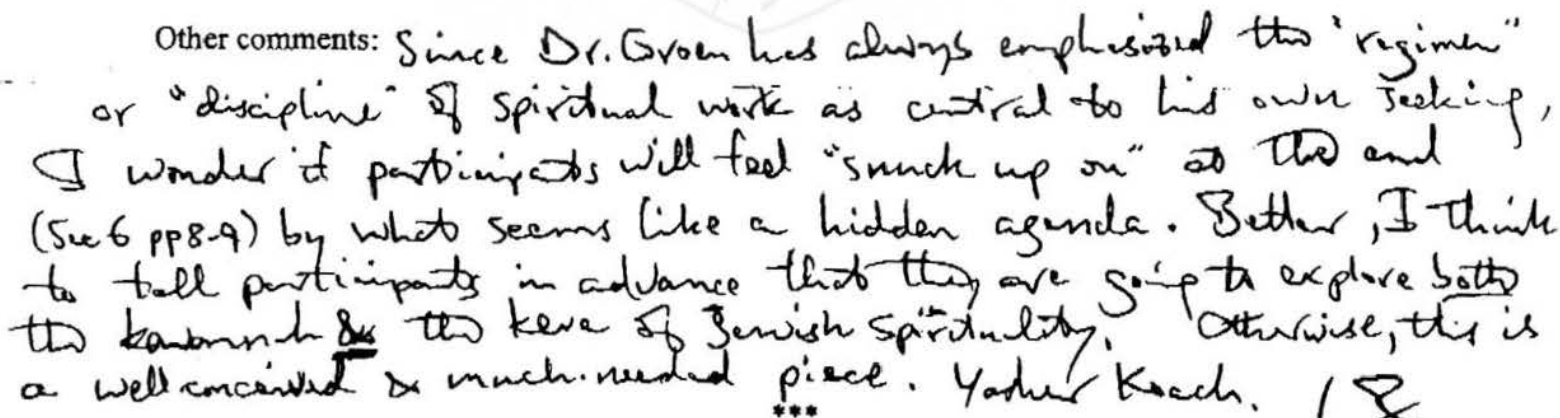 Other comments: Since Dr. Groen has always emphasized the "regimen"
or "discipline" of spiritual work as central to his own seeking,
I wonder if participants will feel "snuck up on" at the end
(Sec 6 pp8-9) by what seems like a hidden agenda. Better, I think
to tell participants in advance that they are going to explore both
the kavannah & the keva of Jewish spirituality. Otherwise, this is
a well conceived & much-needed piece. Yasher Koach.
***